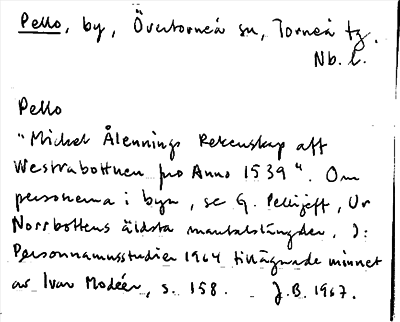 Pello, by, Övertorneå sn, Torneå tg.
Nb. l.
Pello
"Mickel Ålennings Rekenskap aff
Westrabottnen pro Anno 1539". Om
personerna i byn, se G. Pellijeff, Ur
Norrbottens äldsta mantalslängder, I:
Personnamnsstudier 1964 tillägnade minnet
av Ivar Modéer, s. 158. J.B. 1967.